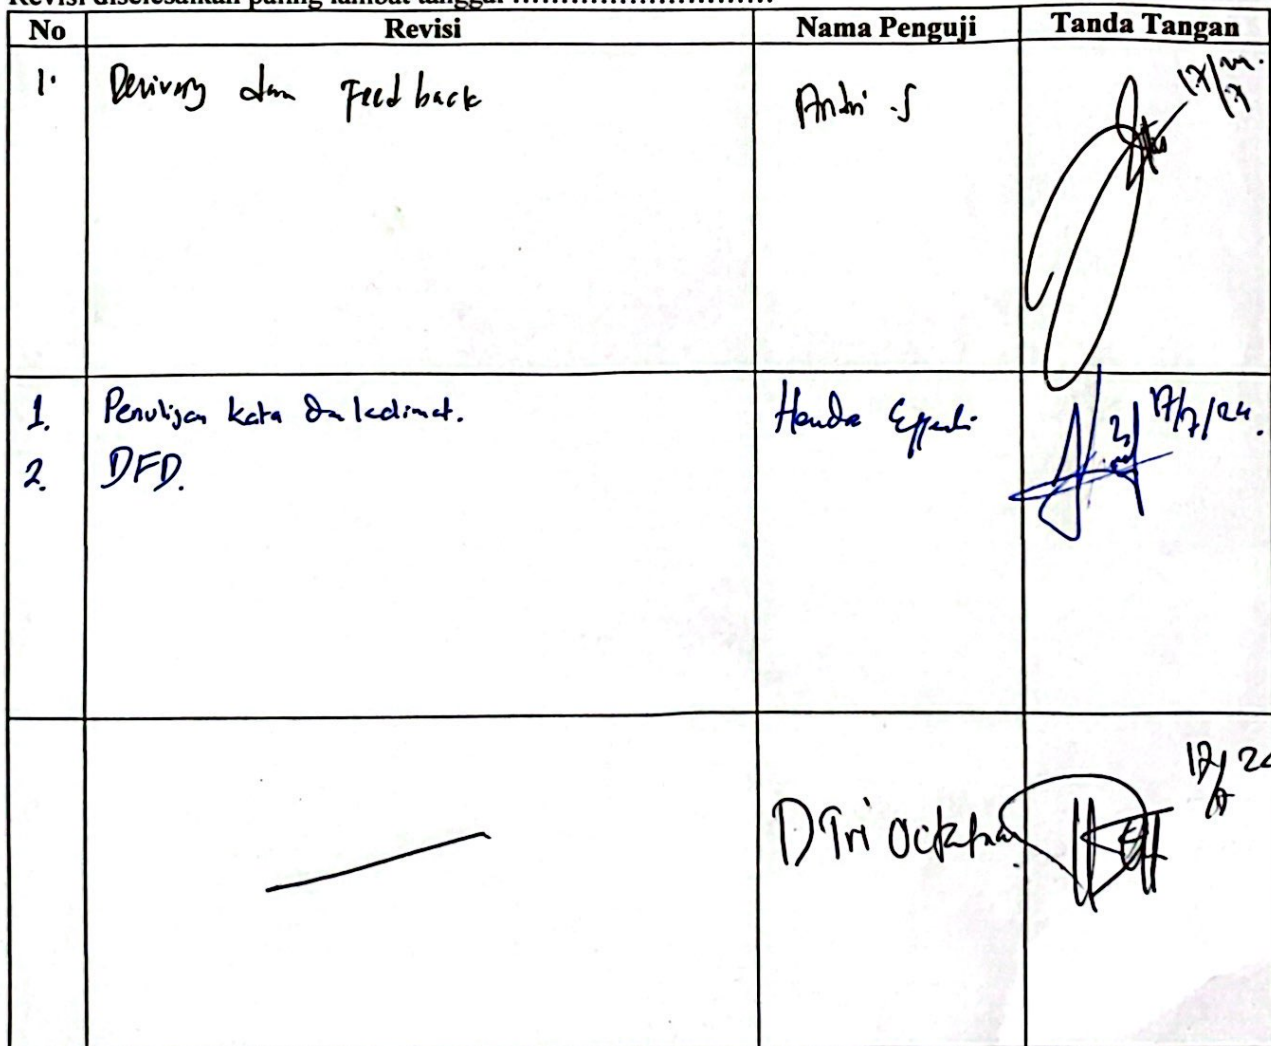 Revisi diselesaikan paling lambat tanggal ..............................
No Revisi Nama Penguji Tanda Tangan
1. Derivery dan Feedback Andri .S
1. Penulisan kata dan kalimat. Hendra Effendi 17/7/24.
2. DFD.
D Tri